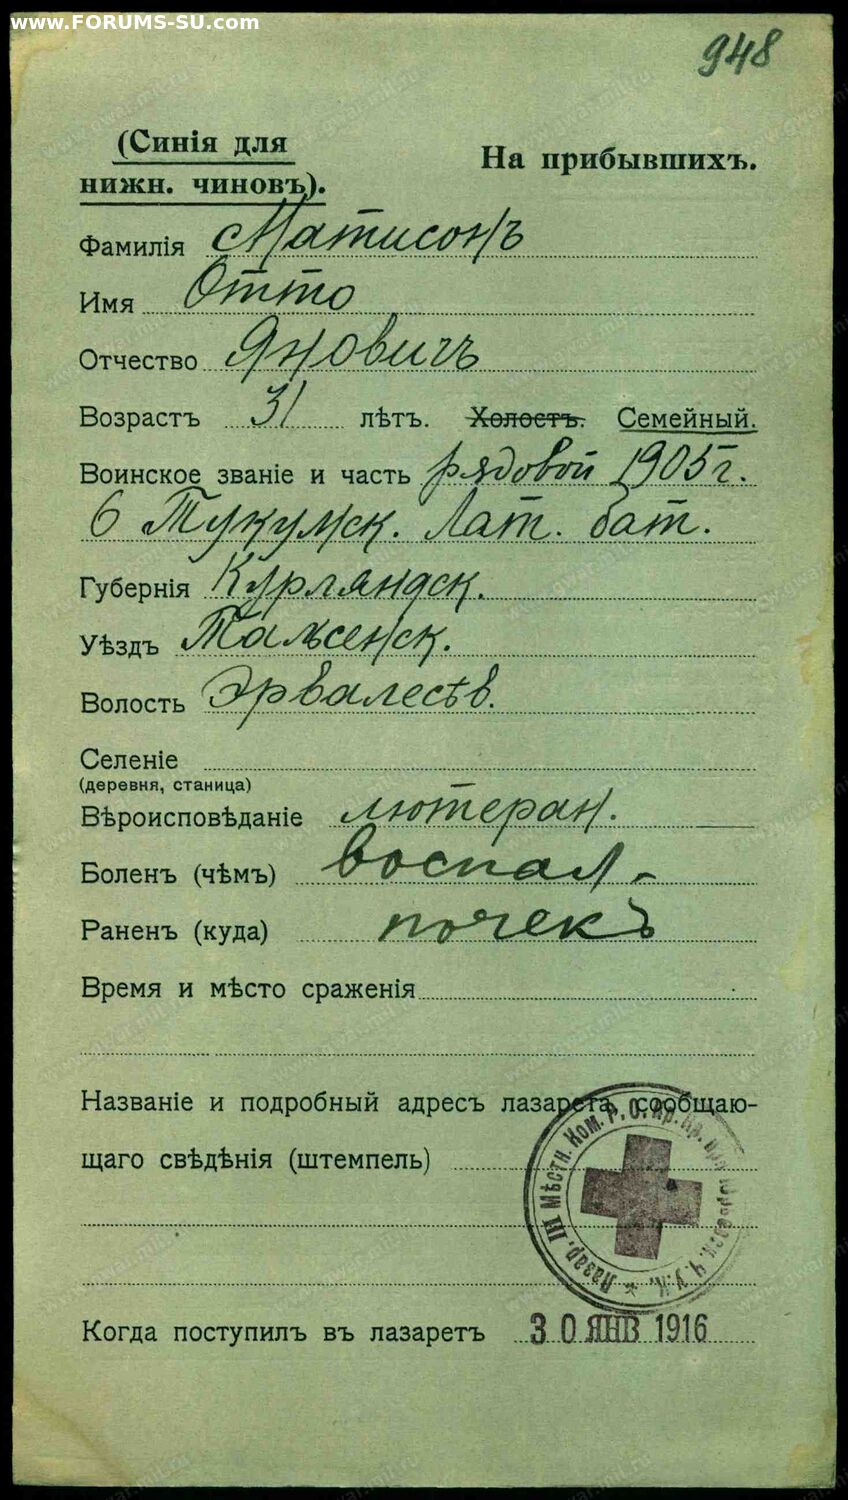 www.FORUMS-SU.com
948
(Синія для
нижн. чиновъ).
На прибывшихъ.
Фамилія Матисонъ
Имя Отто
Отчество Яновичъ
Возрастъ 31 лѣтъ. Холостъ. Семейный.
Воинское званіе и часть рядовой 1905 г.
6 Тукумск. Лат. бат.
Губернія Курляндск.
Уѣздъ Тальсенск.
Волость Эрвалесѣв.
Селеніе
(деревня, станица)
Вѣроисповѣданіе лютеран.
Боленъ (чѣмъ) воспал.
Раненъ (куда) почекъ
Время и мѣсто сраженія
Названіе и подробный адресъ лазарета, сообщаю-
щаго свѣдѣнія (штемпель)
Лазар. III Мѣстн. Ком. Р. О. Кр. Кр. при
Ч. У. К.
Когда поступилъ въ лазаретъ 30 ЯНВ 1916